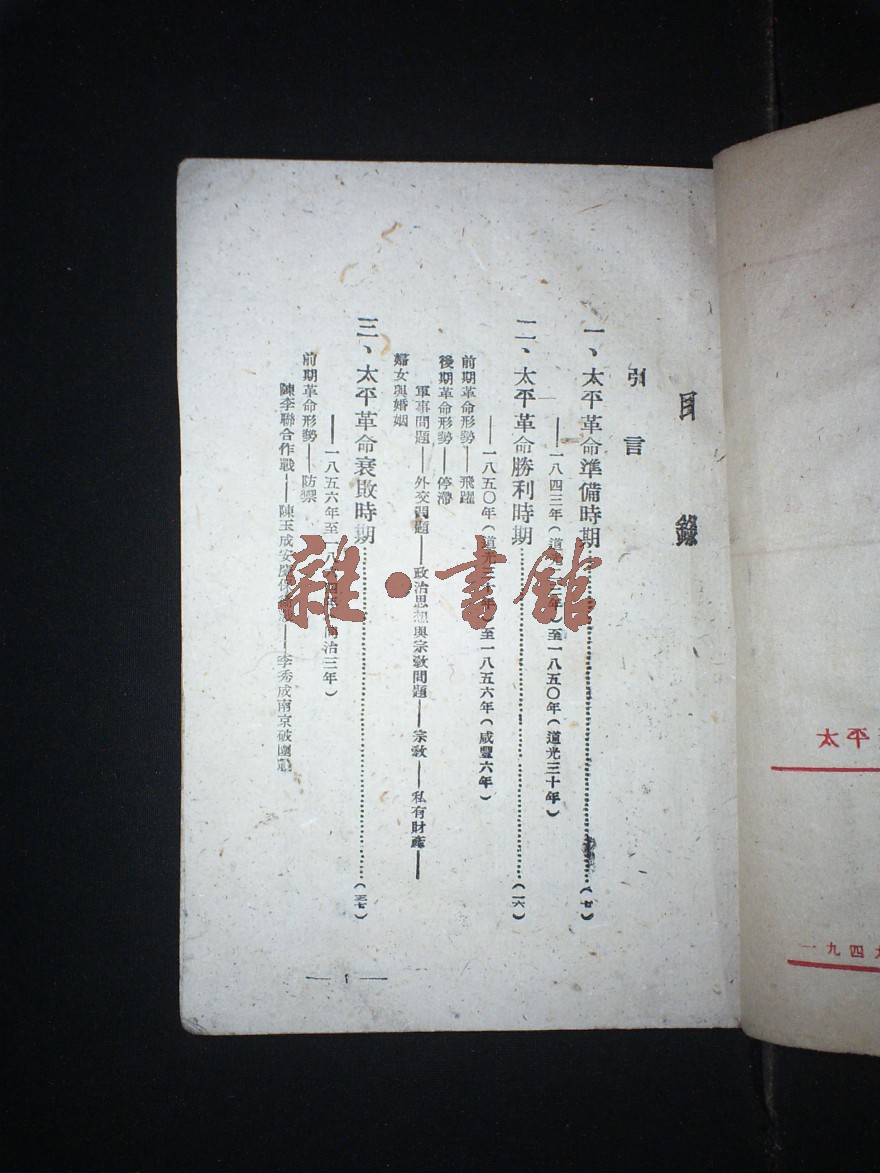 目錄
引言
一、太平革命準備時期……(七)
——一八四三年(道光二三年)至一八五〇年(道光三十年)
二、太平革命勝利時期……(一六)
——一八五〇年(道光三十年)至一八五六年(咸豐六年)
前期革命形勢——飛躍
後期革命形勢——停滯
軍事問題——外交問題——政治思想與宗教問題——宗教——私有財產——
婦女與婚姻
三、太平革命衰敗時期……(三七)
——一八五六年至一八六四年(同治三年)
前期革命形勢——防禦
陳李聯合作戰——陳玉成安慶——李秀成南京破圍戰
— 1 —
太平
一九四九
雜·書館